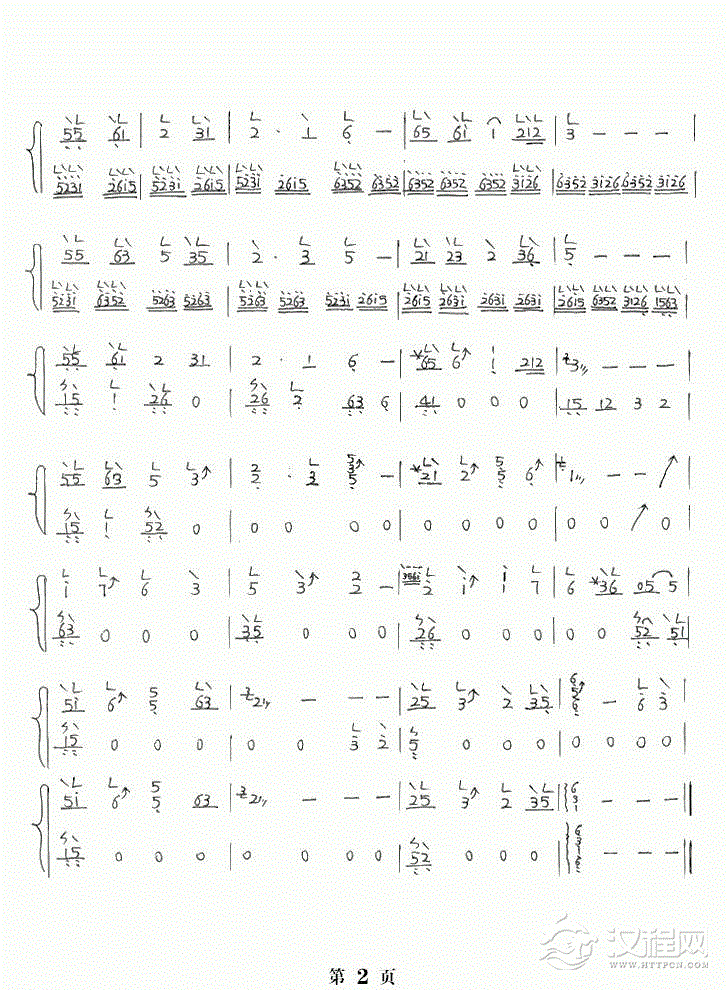 55 61 | 2 31 | 2 · 1 6 — | 65 61 1 212 | 3 — — — |
5231 2615 | 5231 2615 | 5231 2615 6352 6352 | 6352 6352 6352 3126 | 6352 3126 6352 3126 |
55 63 5 35 | 2 · 3 5 — | 21 23 2 36 | 5 — — — |
5231 6352 5263 5263 | 5263 5263 5231 2615 | 2615 2631 2631 2631 | 2615 6352 3126 1563 |
55 61 2 31 | 2 · 1 6 — | *65 6 1 212 | 3 — — — |
15 1 26 0 | 26 2 63 6 | 41 0 0 0 | 15 12 3 2 |
55 63 5 3 | 2 · 3 5 — | *21 2 5 6 | 1 — —
15 1 52 0 | 0 0 0 0 | 0 0 0 0 | 0 0 0
1 7 6 3 | 5 3 2 — | 2 1 1 7 | 6 *36 05 5 |
63 0 0 0 | 35 0 0 0 | 26 0 0 0 | 0 0 52 51 |
51 6 5 63 | 2 — — — | 25 3 2 35 | — 6 3 |
15 0 0 0 | 0 0 3 2 | 5 0 0 0 | 0 0 0 0 |
51 6 5 63 | 2 — — — | 25 3 2 35 | — — — ||
15 0 0 0 | 0 0 0 0 | 52 0 0 0 | — — — ||
汉程网
WWW.HTTPCN.COM
第 2 页